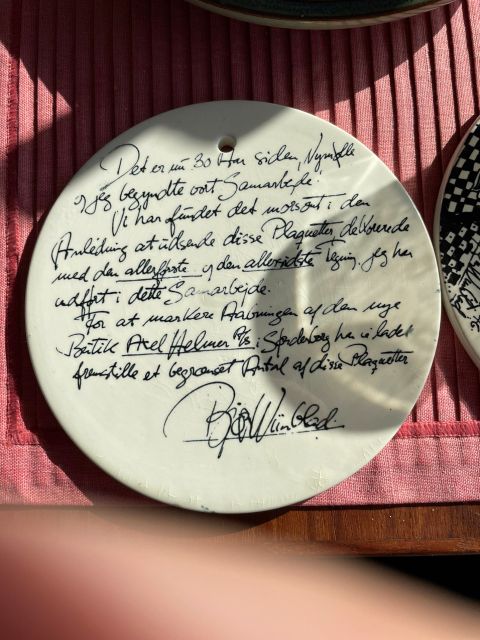 Det er nu 30 Aar siden, Nymølle
og jeg begyndte vort Samarbejde.
Vi har fundet det morsomt i den
Anledning at udsende disse Plaquetter dekorerede
med den allerførste og den allersidste Tegning, jeg har
udført i dette Samarbejde.
For at markere Aabningen af den nye
Butik Axel Helmer A/S i Sønderborg har vi ladet
fremstille et begrænset Antal af disse Plaquetter
Bjørn Wiinblad